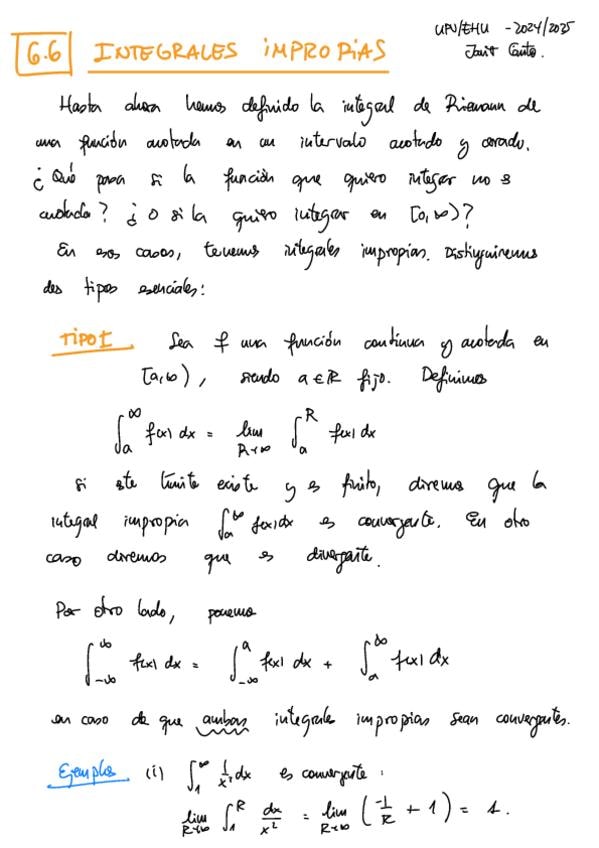 UPV/EHU - 2024/2025
6.6 INTEGRALES IMPROPIAS
Hasta ahora hemos definido la integral de Riemann de
una función acotada en un intervalo acotado y cerrado.
¿Qué pasa si la función que quiero integrar no es
acotada? ¿O si la quiero integrar en [0,∞)?
En esos casos, tenemos integrales impropias. Distinguiremos
dos tipos esenciales:
TIPO I Sea f una función continua y acotada en
[a,∞), siendo a ∈ ℝ fijo. Definimos
∫_a^∞ f(x) dx = lim_{R→∞} ∫_a^R f(x) dx
Si este límite existe y es finito, diremos que la
integral impropia ∫_a^∞ f(x) dx es convergente. En otro
caso diremos que es divergente.
Por otro lado, ponemos
∫_{-∞}^∞ f(x) dx = ∫_{-∞}^a f(x) dx + ∫_a^∞ f(x) dx
en caso de que ambas integrales impropias sean convergentes.
Ejemplos (i) ∫_1^∞ 1/x² dx es convergente:
lim_{R→∞} ∫_1^R dx/x² = lim_{R→∞} (-1/R + 1) = 1.